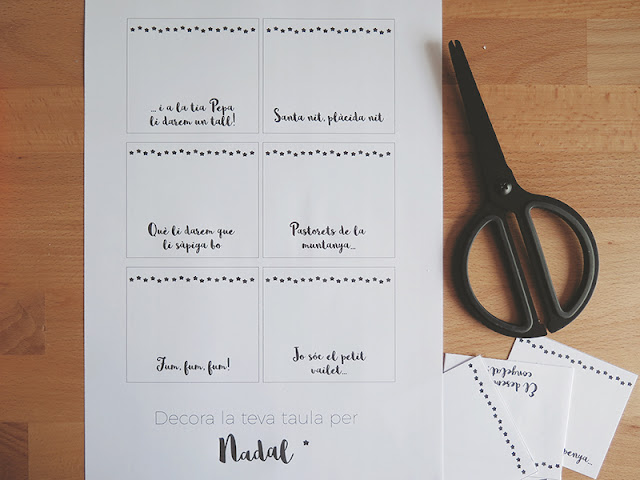 ... i a la tia Pepa
li darem un tall!
Santa nit, plàcida nit
Què li darem que
li sàpiga bo
Pastorets de la
muntanya...
Fum, fum, fum!
Jo sóc el petit
vailet...
Decora la teva taula per
Nadal *
El desem
congelat:
penya...